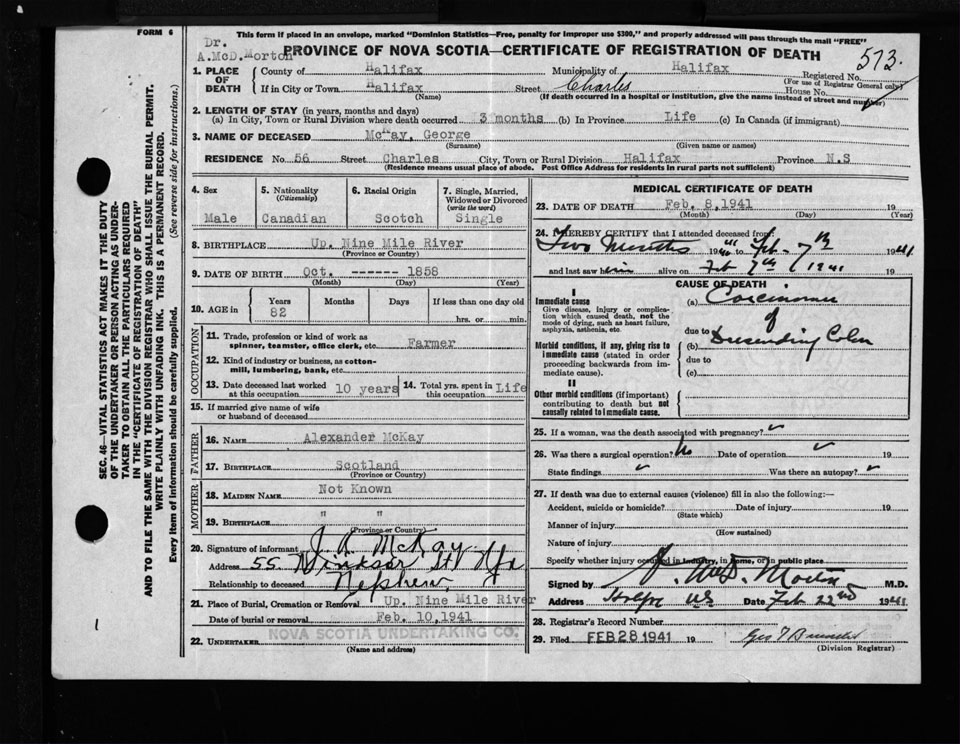 FORM 6
This form if placed in an envelope, marked "Dominion Statistics—Free, penalty for improper use $300," and properly addressed will pass through the mail "FREE"
Dr.
A.McD.Morton
PROVINCE OF NOVA SCOTIA—CERTIFICATE OF REGISTRATION OF DEATH
573.
1. PLACE OF DEATH
County of Halifax Municipality of Halifax Registered No.
(For use of Registrar General only)
If in City or Town Halifax Street Charles House No.
(Name) (If death occurred in a hospital or institution, give the name instead of street and number)
2. LENGTH OF STAY (in years, months and days)
(a) In City, Town or Rural Division where death occurred 3 months (b) In Province Life (c) In Canada (if immigrant)
3. NAME OF DECEASED McKay, George
(Surname) (Given name or names)
RESIDENCE No. 56 Street Charles City, Town or Rural Division Halifax Province N.S
(Residence means usual place of abode. Post Office Address for residents in rural parts not sufficient)
4. Sex Male
5. Nationality (Citizenship) Canadian
6. Racial Origin Scotch
7. Single, Married, Widowed or Divorced (write the word) Single
8. BIRTHPLACE Up. Nine Mile River
(Province or Country)
9. DATE OF BIRTH Oct. ------ 1858
(Month) (Day) (Year)
10. AGE in Years Months Days If less than one day old
82 hrs. or min.
OCCUPATION
11. Trade, profession or kind of work as spinner, teamster, office clerk, etc. Farmer
12. Kind of industry or business, as cotton-mill, lumbering, bank, etc.
13. Date deceased last worked at this occupation 10 years
14. Total yrs. spent in this occupation Life
15. If married give name of wife or husband of deceased
FATHER
16. NAME Alexander McKay
17. BIRTHPLACE Scotland
(Province or Country)
MOTHER
18. MAIDEN NAME Not Known
19. BIRTHPLACE " "
(Province or Country)
20. Signature of informant J. A. McKay
Address 55 Windsor St Hfx
Relationship to deceased Nephew
21. Place of Burial, Cremation or Removal Up. Nine Mile River
Date of burial or removal Feb. 10,1941
22. UNDERTAKER NOVA SCOTIA UNDERTAKING CO.
(Name and address)
MEDICAL CERTIFICATE OF DEATH
23. DATE OF DEATH Feb. 8,1941 19
(Month) (Day) (Year)
24. I HEREBY CERTIFY that I attended deceased from:
Two Months 19 to Feb - 7th 1941
and last saw him alive on Feb 7th 1941
CAUSE OF DEATH
I
Immediate cause
Give disease, injury or complication which caused death, not the mode of dying, such as heart failure, asphyxia, asthenia, etc.
(a) Carcinoma
of
due to
Morbid conditions, if any, giving rise to immediate cause (stated in order proceeding backwards from immediate cause).
(b) Descending Colon
due to
(c)
II
Other morbid conditions (if important) contributing to death but not causally related to immediate cause.
25. If a woman, was the death associated with pregnancy? ✓
26. Was there a surgical operation? No Date of operation ✓ 19
State findings ✓ Was there an autopsy? ✓
27. If death was due to external causes (violence) fill in also the following:—
Accident, suicide or homicide? Date of injury 19
(State which)
Manner of injury
(How sustained)
Nature of injury
Specify whether injury occurred in industry, in home, or in public place
Signed by Morton M.D.
Address Date Feb 22nd 1941
28. Registrar's Record Number
29. Filed FEB 28 1941 19 Geo
(Division Registrar)
SEC. 46—VITAL STATISTICS ACT MAKES IT THE DUTY
OF THE UNDERTAKER OR PERSON ACTING AS UNDER-
TAKER TO OBTAIN ALL THE PARTICULARS REQUIRED
IN THE "CERTIFICATE OF REGISTRATION OF DEATH"
AND TO FILE THE SAME WITH THE DIVISION REGISTRAR WHO SHALL ISSUE THE BURIAL PERMIT.
WRITE PLAINLY WITH UNFADING INK. THIS IS A PERMANENT RECORD.
Every item of information should be carefully supplied. (See reverse side for instructions.)
1